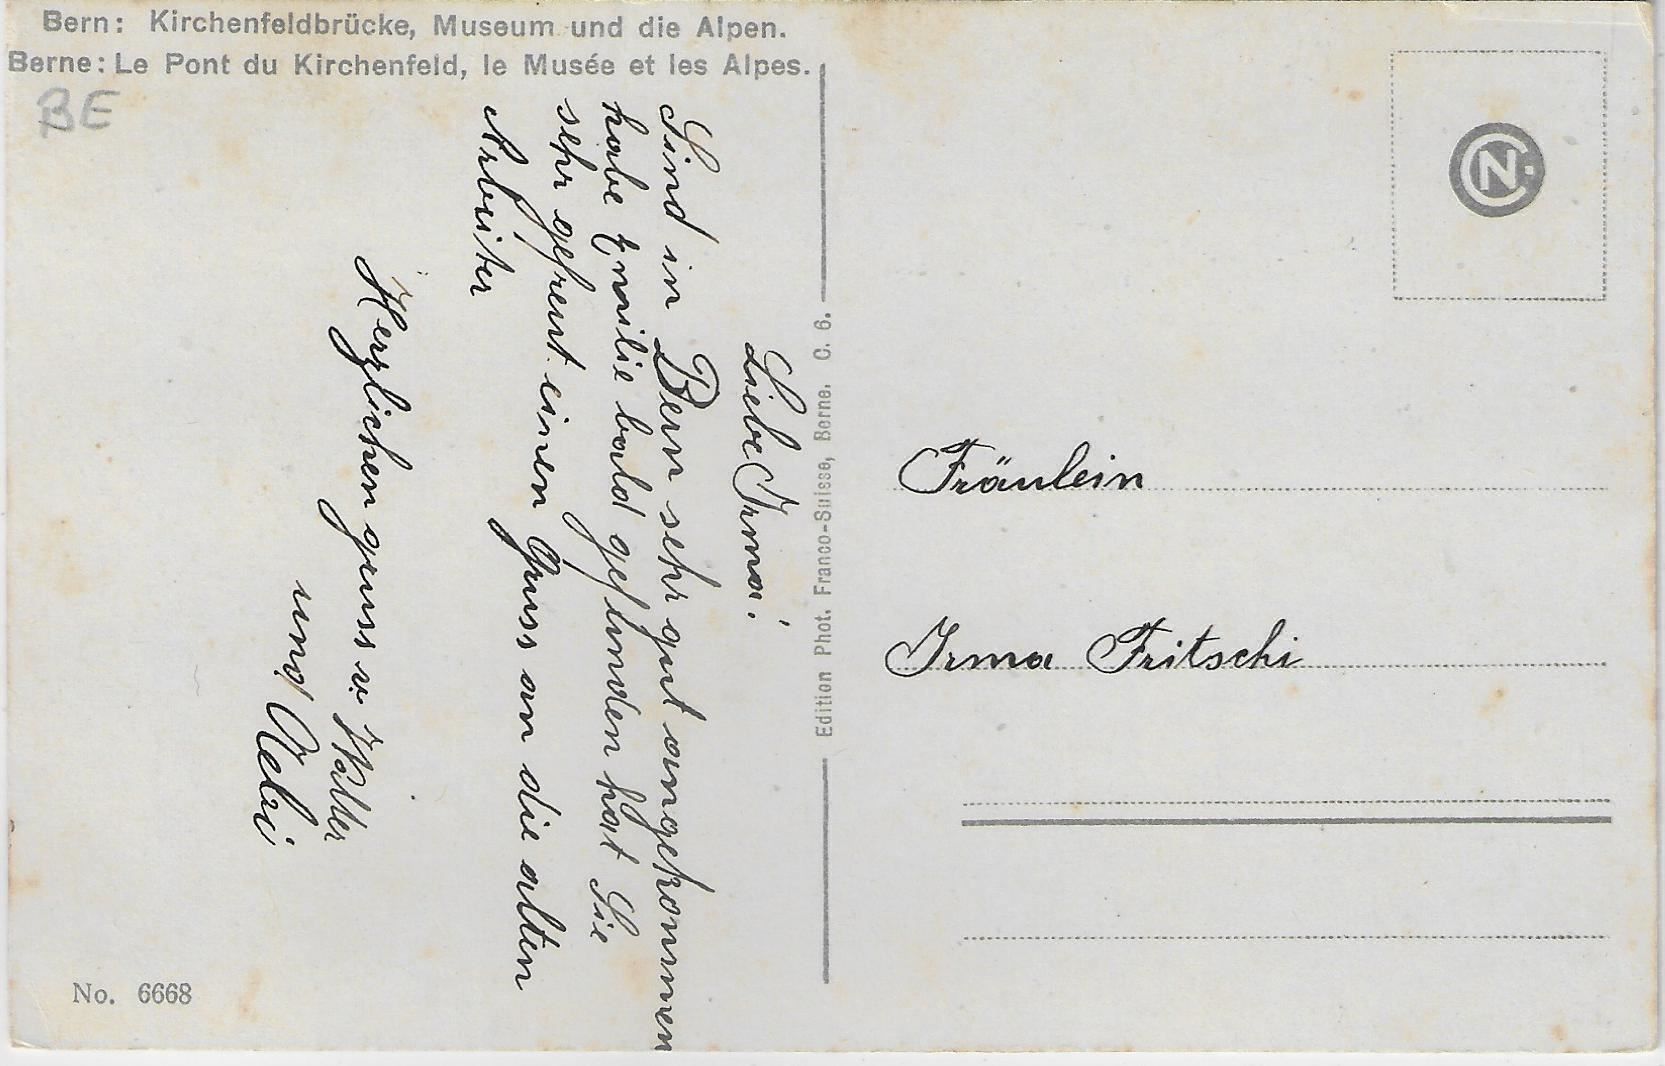 Bern: Kirchenfeldbrücke, Museum und die Alpen.
Berne: Le Pont du Kirchenfeld, le Musée et les Alpes.
BE
Liebe Irma!
Sind in Bern sehr gut angekommen
habe Emilie bald gefunden hat Sie
sehr gefreut einen Gruss an die alten
Arbeiter
Herzlichen gruss v. Walter
und Aebi
No. 6668
Edition Phot. Franco-Suisse, Berne. C. 6.
CN
Fräulein
Irma Fritschi